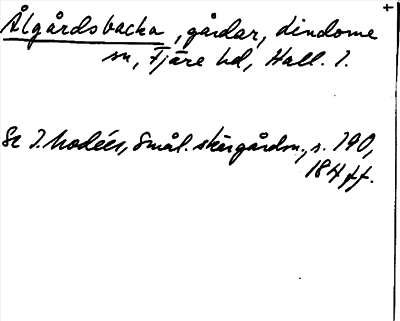 Ålgårdsbacka, gårdar, Lindome
sn, Fjäre hd, Hall. l.
Se I. Modéer, Smål. skärgårdsn., s. 190,
184 ff.